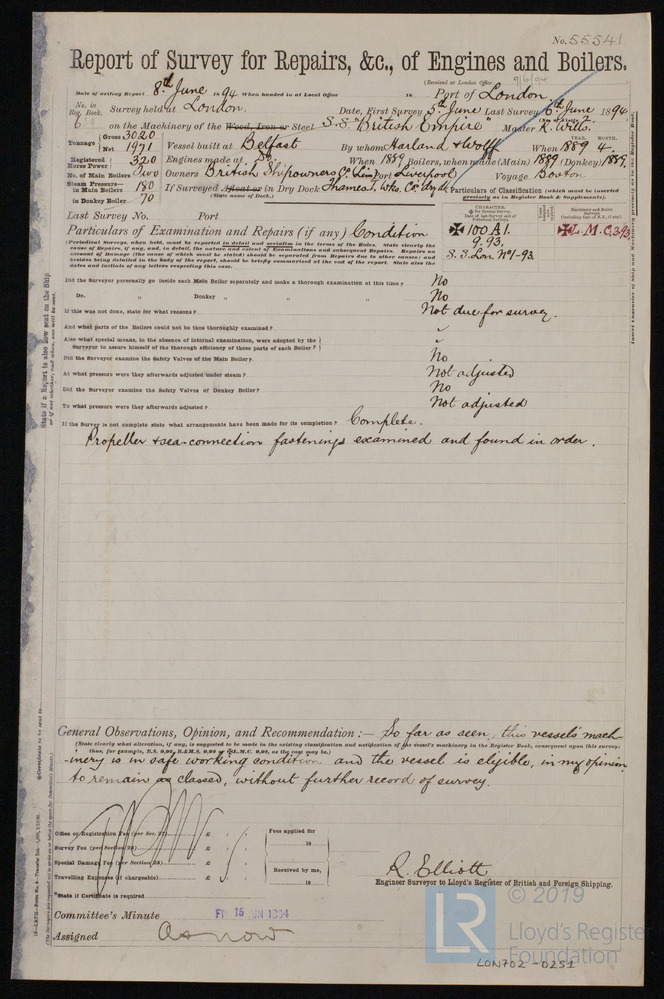 No. 55541
Report of Survey for Repairs, &c., of Engines and Boilers.
(Received at London Office 9/6/94)
Date of writing Report 8th June 1894 When handed in at Local Office 18 Port of London
No. in Reg. Book. Survey held at London. Date, First Survey 5th June Last Survey 6th June 1894
on the Machinery of the Wood, Iron or Steel S.S. "British Empire" Master R. Wills.
Tonnage Gross 3020 Net 1971 Vessel built at Belfast By whom Harland & Wolff When 1889 YEAR. 4. MONTH.
Registered Horse Power 320 Engines made at Do. When 1889 Boilers, when made (Main) 1889 (Donkey) 1889.
No. of Main Boilers Two Owners British Shipowners Co. Lim. Port Liverpool Voyage Boston
Steam Pressure— in Main Boilers 180 If Surveyed Afloat or in Dry Dock Thames I. Wks. Co. dry dk
in Donkey Boiler 70 (State name of Dock.)
Particulars of Classification (which must be inserted precisely as in Register Book & Supplements).
Last Survey No. Port
Particulars of Examination and Repairs (if any) Condition
CHARACTER.
✠ 100 A1.
9.93.
S.S. Lon. No 1-93.
✠ L.M.C. 3.93
(Periodical Surveys, when held, must be reported in detail and seriatim in the terms of the Rules. State clearly the
cause of Repairs, if any, and, in detail, the nature and extent of Examinations and subsequent Repairs. Repairs on
account of Damage (the cause of which must be stated) should be separated from Repairs due to other causes; and
besides being detailed in the body of the report, should be briefly summarised at the end of the report. State also the
dates and initials of any letters respecting this case.
Did the Surveyor personally go inside each Main Boiler separately and make a thorough examination at this time? No
Do. " Donkey " " " No
If this was not done, state for what reasons? Not due for survey.
And what parts of the Boilers could not be thus thoroughly examined?
Also what special means, in the absence of internal examination, were adopted by the
Surveyor to assure himself of the thorough efficiency of those parts of each Boiler?
Did the Surveyor examine the Safety Valves of the Main Boiler? No
At what pressure were they afterwards adjusted under steam? Not adjusted
Did the Surveyor examine the Safety Valves of Donkey Boiler? No
To what pressure were they afterwards adjusted? Not adjusted
If the Survey is not complete state what arrangements have been made for its completion? Complete.
Propeller & sea-connection fastenings examined and found in order.
General Observations, Opinion, and Recommendation:— So far as seen, this vessel's mach-
(State clearly what alteration, if any, is suggested to be made in the existing classification and notification of the vessel's machinery in the Register Book, consequent upon this survey;
inery is in safe working condition and the vessel is eligible, in my opinion,
to remain as classed, without further record of survey.
Office or Registration Fee (per Sec. 27) £ Fees applied for
Survey Fee (per Section 28) £ 18
Special Damage Fee (per Section 28) £ Received by me,
Travelling Expenses (if chargeable) £ 18
*State if Certificate is required
R. Elliott
Engineer Surveyor to Lloyd's Register of British and Foreign Shipping.
Committee's Minute FRI 15 JUN 1894
Assigned As now
LR © 2019
Lloyd's Register
Foundation
LON702-0251